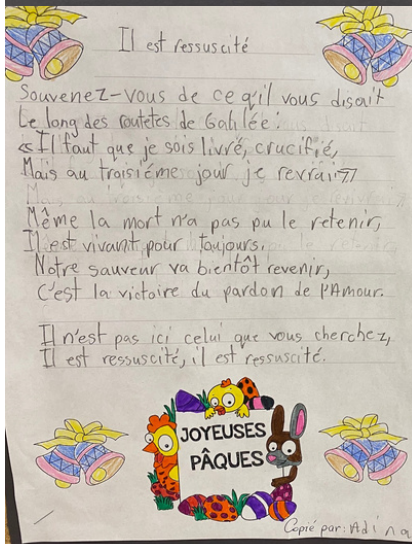 Il est ressuscité
Souvenez-vous de ce qil vous disait
Le long des routetes de Galilée :
«Il faut que je sois livré, crucifié,
Mais au troisiéme jour je
Même la mort n'a pas pu le retenir,
Il est vivant pour toujours.
Notre sauveur va bientôt revenir,
C'est la victoire du pardon de l'Amour.
Il n'est pas ici celui que vous cherchez,
Il est ressuscité, il est ressuscité.
JOYEUSES
PÂQUES
Copié par : Adina